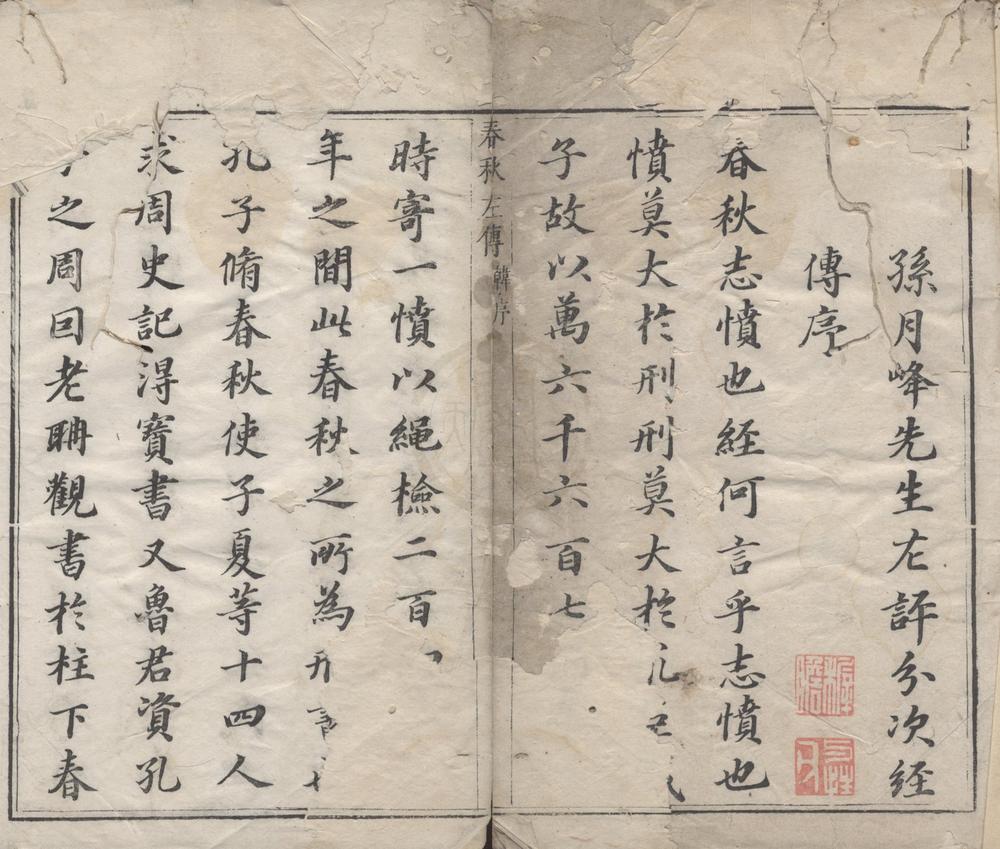 孫月峰先生左評分次經
傳序
春秋志憤也經何言乎志憤也
憤莫大於刑刑莫大於
子故以萬六千六百七
春秋左傳 韓序
時寄一憤以繩檢二百
年之間此春秋之所為
孔子脩春秋使子夏等十四人
求周史記得寶書又魯君資孔
之周回老聃觀書於柱下春